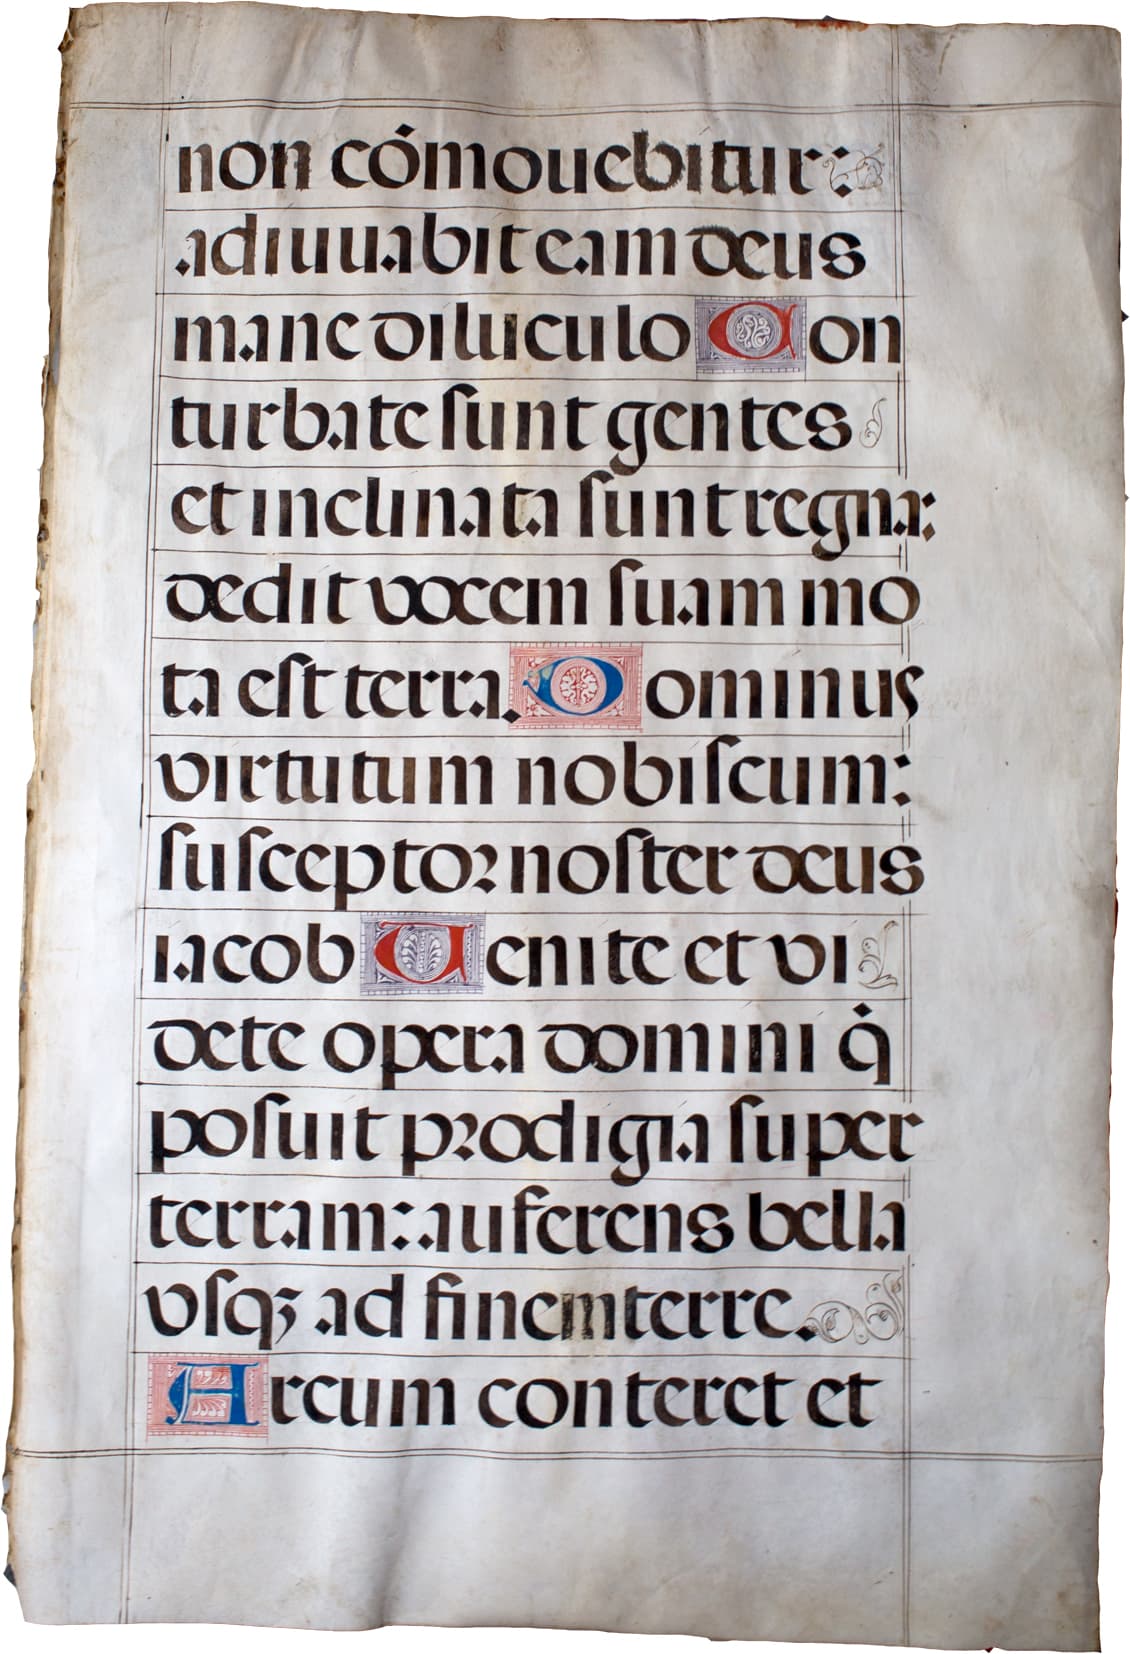 non cómouebitur:
adiuuabit eam deus
mane diluculo Con
turbate ſunt gentes
et inclinata ſunt regna:
dedit vocem ſuam mo
ta eſt terra. Dominus
virtutum nobiſcum:
ſuſceptoꝛ noſter deus
iacob Uenite et vi
dete opera domini q̇̃
poſuit pꝛodigia ſuper
terram: auferens bella
vſqꝫ ad finem terre.
Arcum conteret et